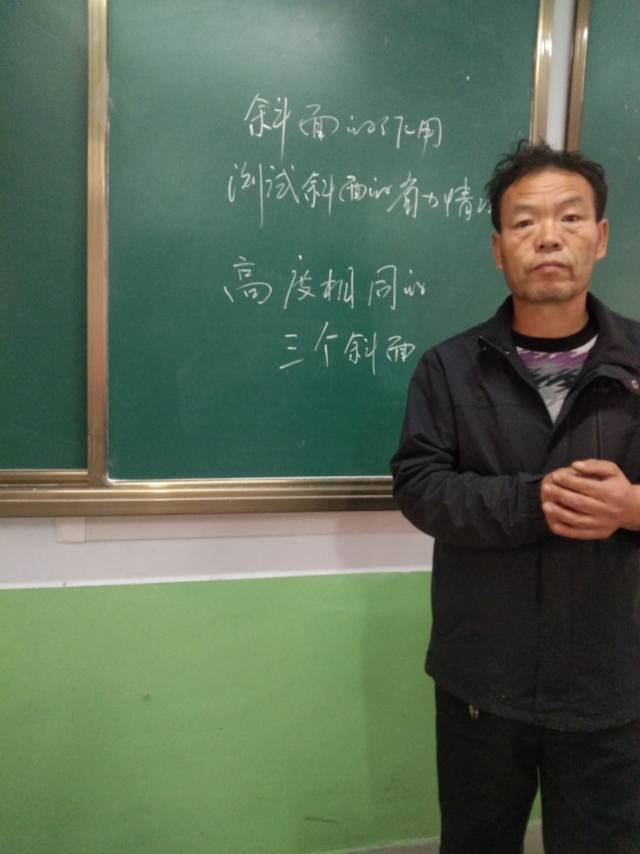 斜面的作用
测试斜面的省力情
高度相同的
三个斜面